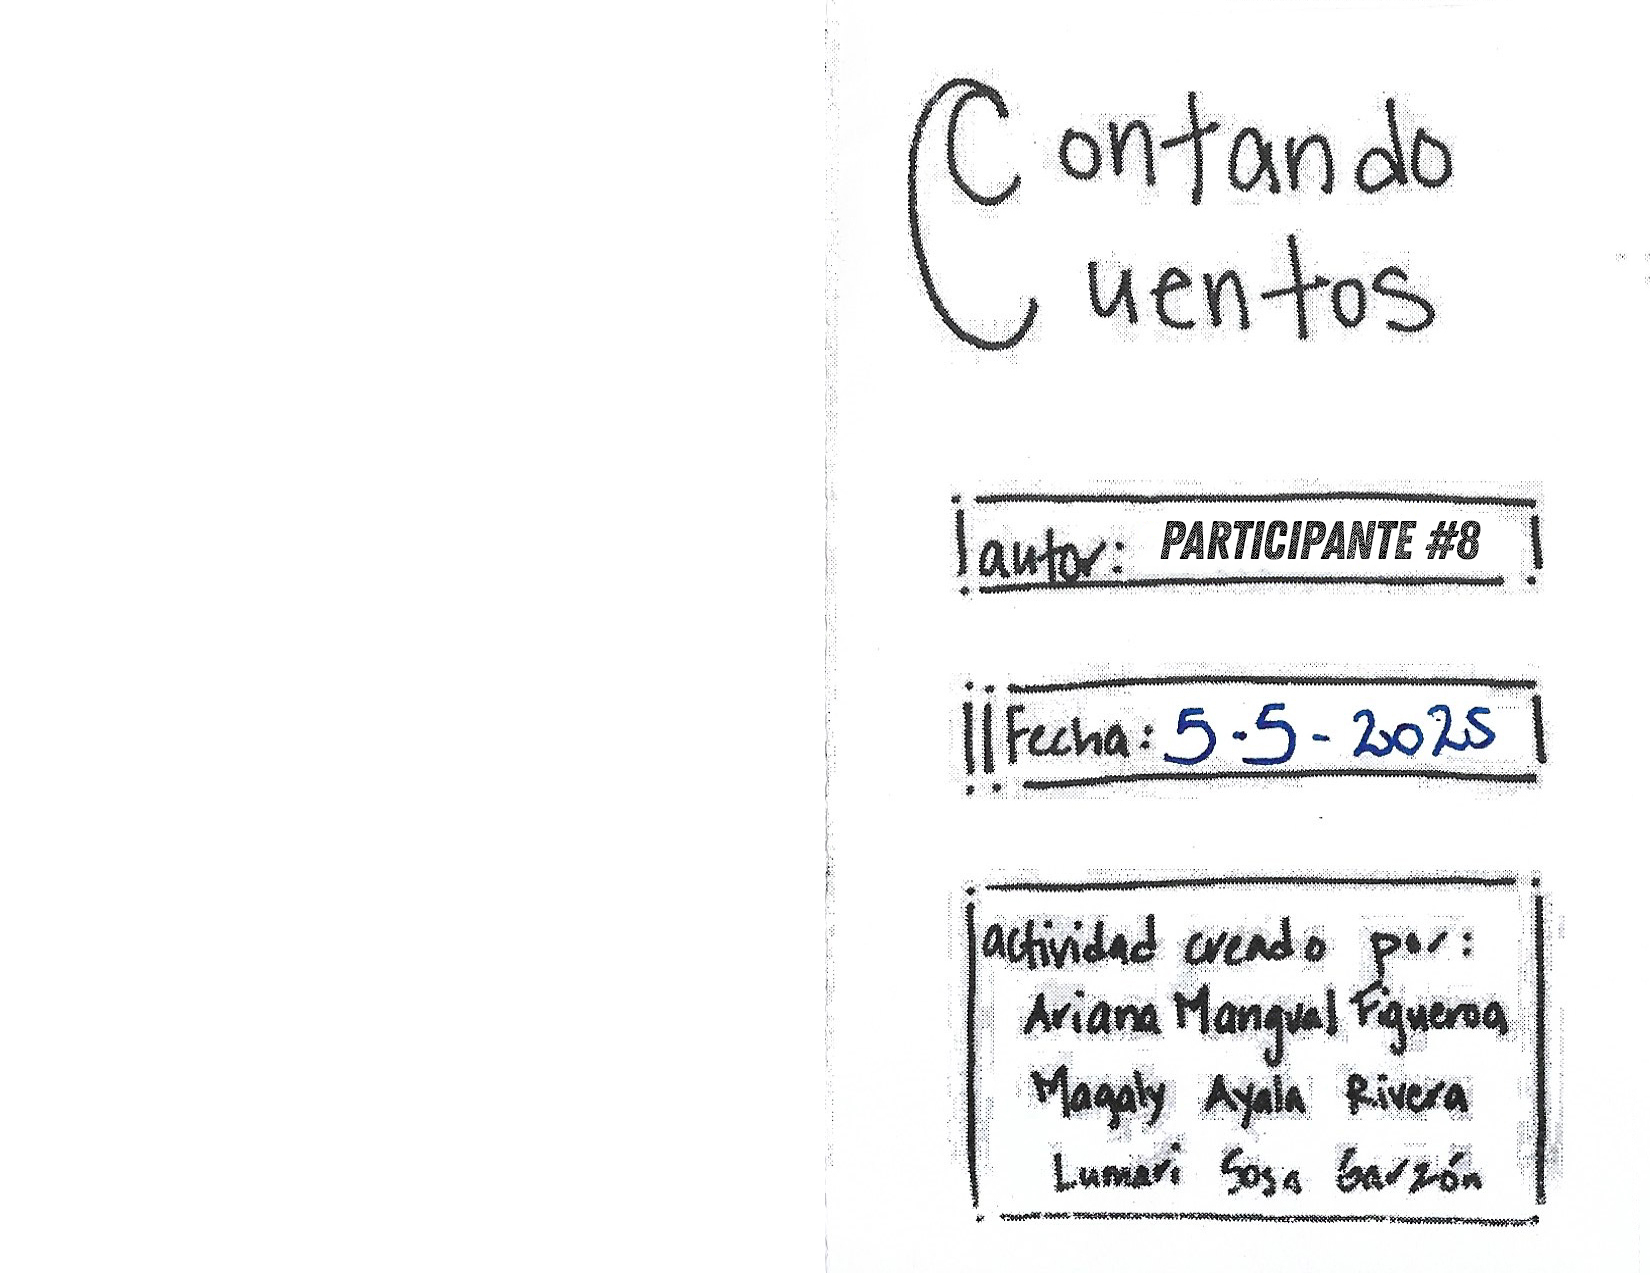 Contando
Cuentos
autor: PARTICIPANTE #8
Fecha: 5-5-2025
actividad creado por:
Ariana Mangual Figueroa
Magaly Ayala Rivera
Lumari Sosa Garzón